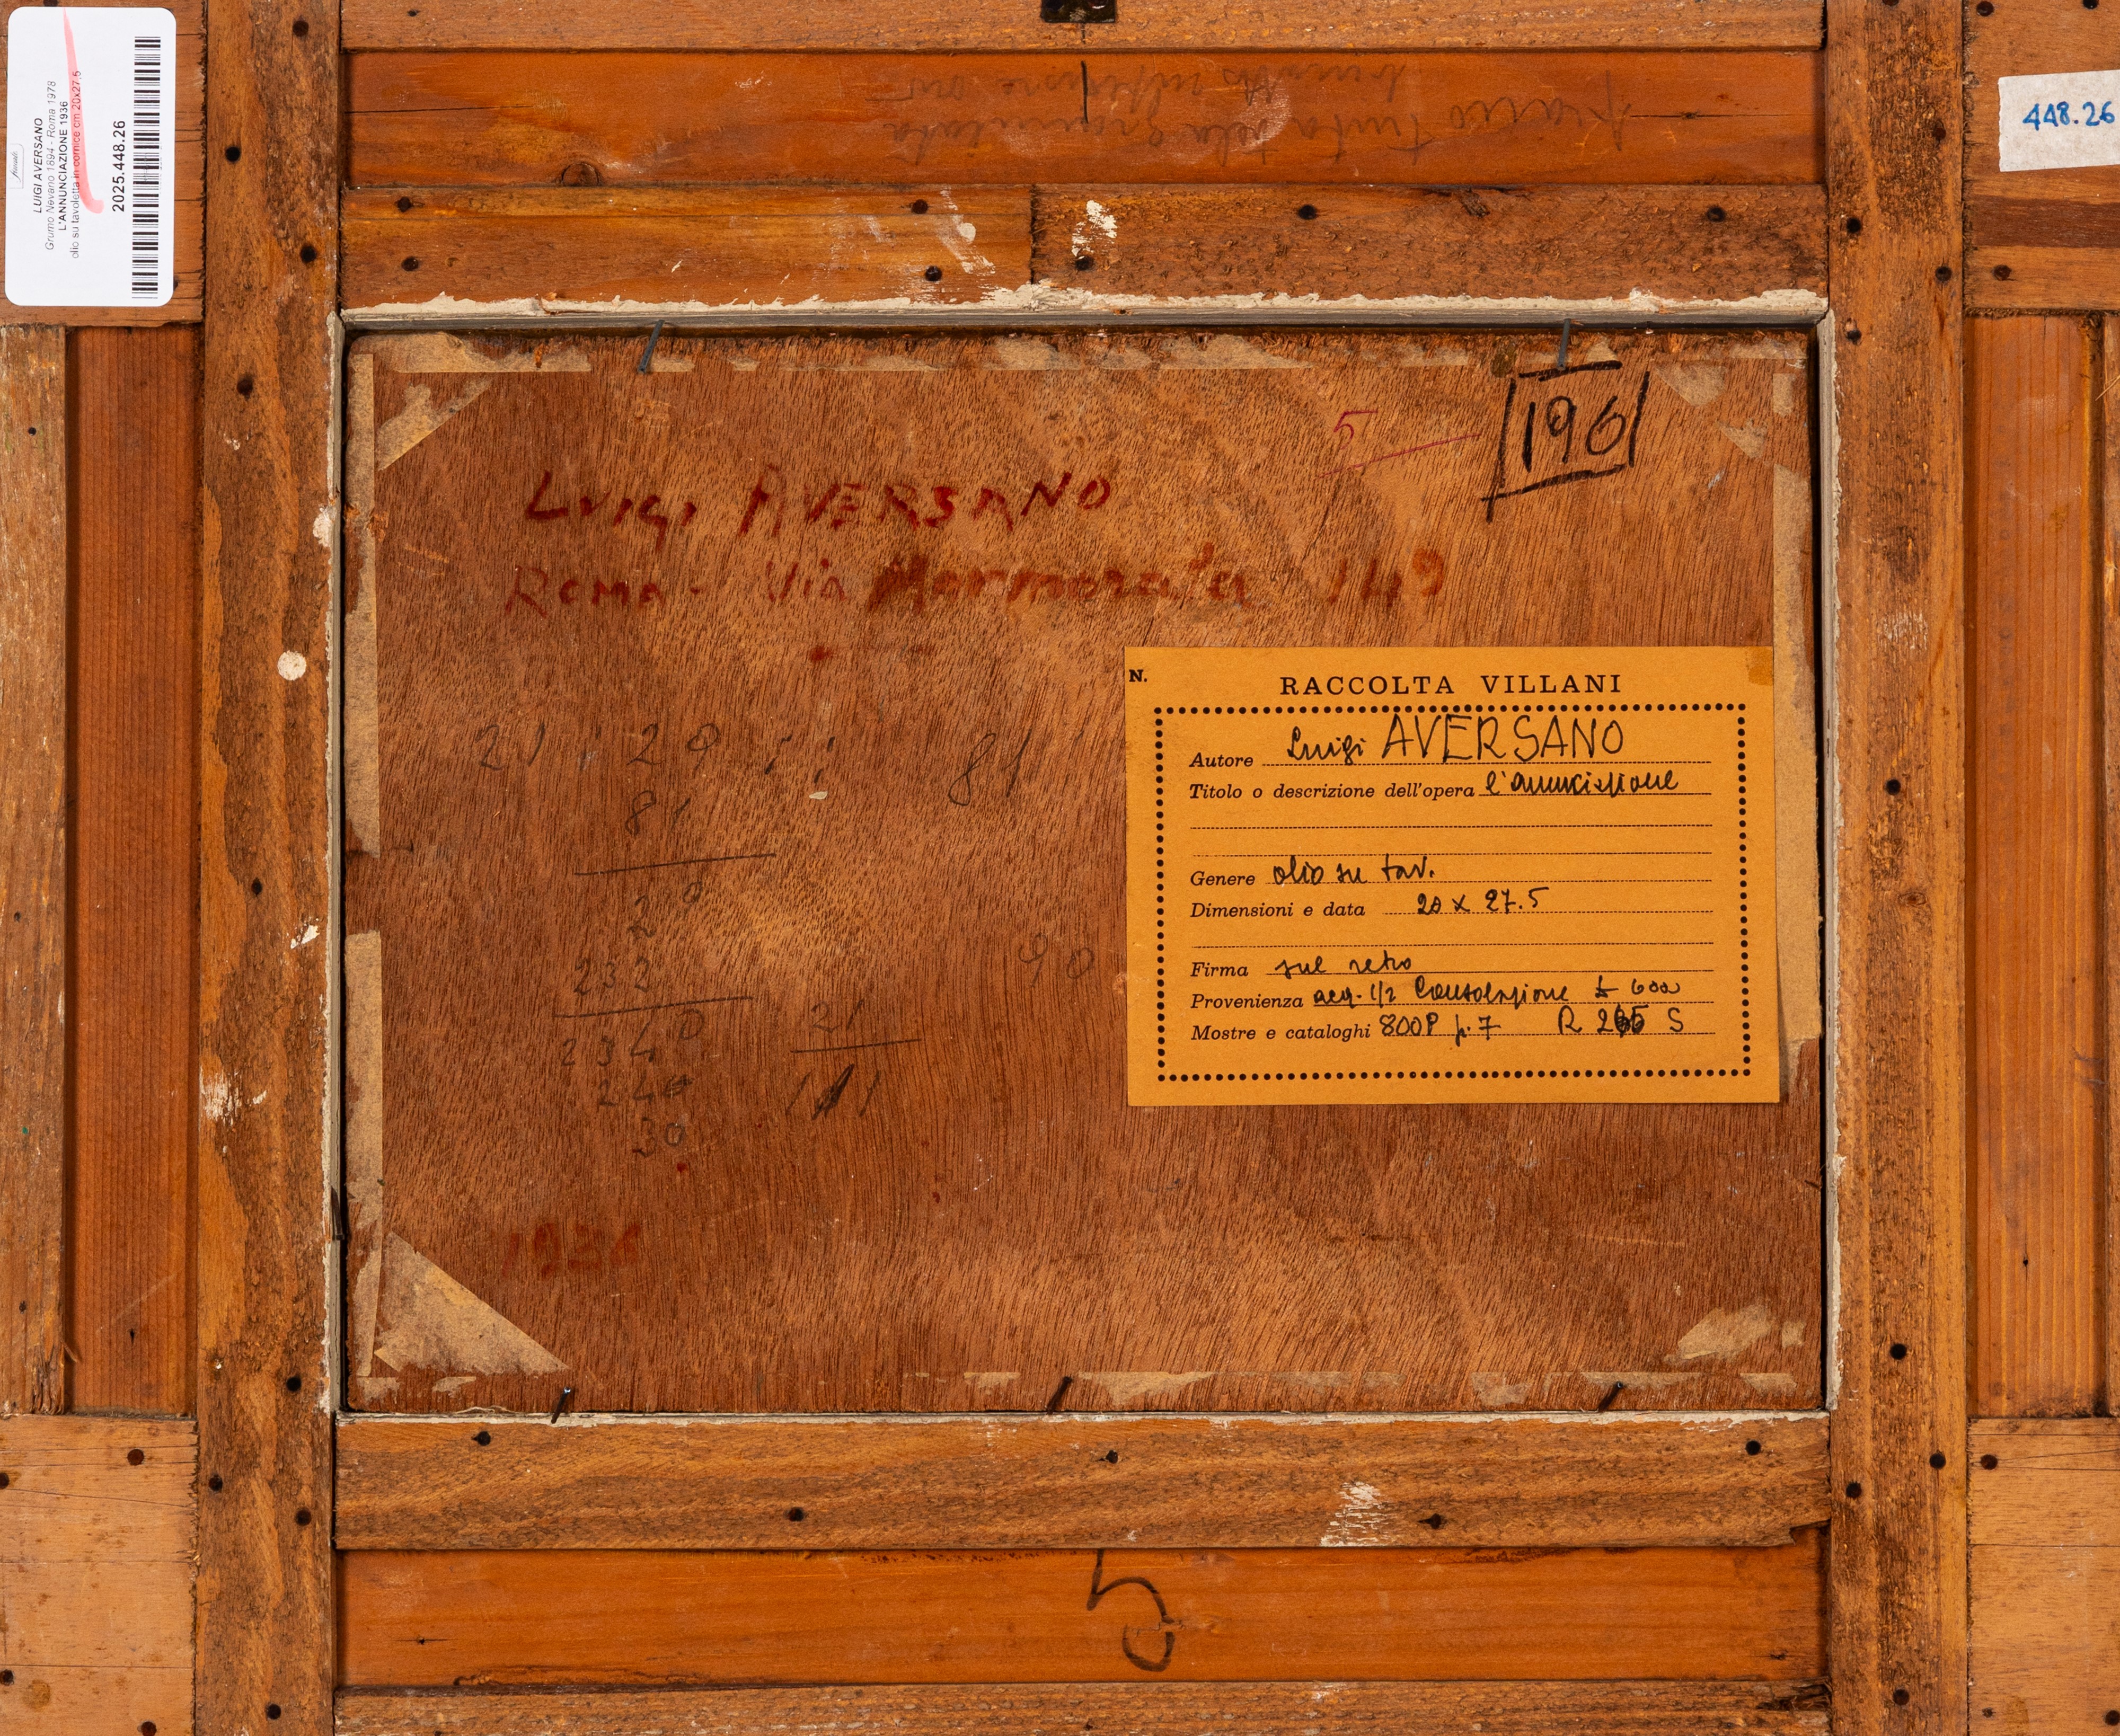 LUIGI AVERSANO
Grumo Nevano 1894 - Roma 1978
L'ANNUNCIAZIONE 1936
olio su tavoletta in cornice cm 20x27.5
2025.448.26
448.26
196
5
LUIGI AVERSANO
ROMA - Via Marmorata 149
21 : 29 :: 81
81
29
232
2349
240
30
90
21
1936
N.
RACCOLTA VILLANI
Autore Luigi AVERSANO
Titolo o descrizione dell'opera l'annunciazione
Genere olio su tav.
Dimensioni e data 20 x 27.5
Firma sul retro
Provenienza acq. 1/2 Consolazione £ 600
Mostre e cataloghi 800P p. 7 R 265 S
5